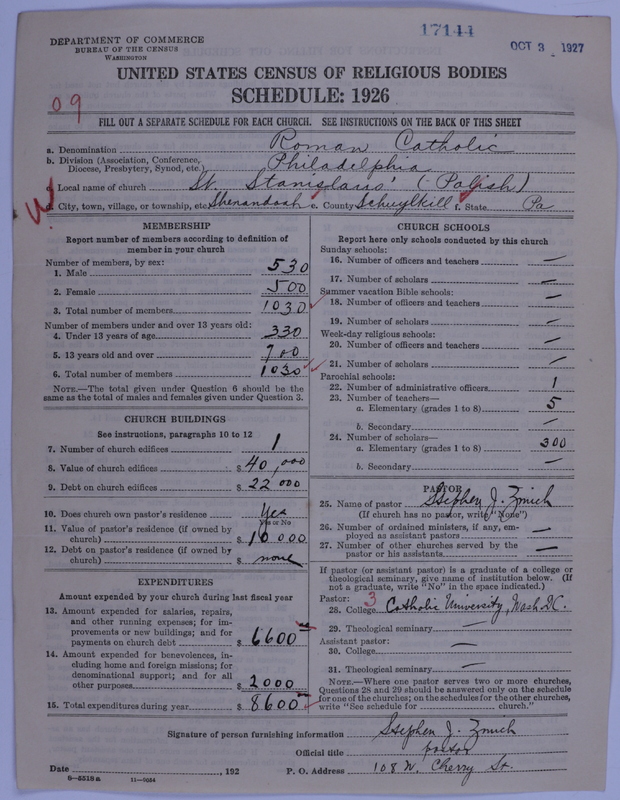 17144
OCT 3 1927
DEPARTMENT OF COMMERCE
BUREAU OF THE CENSUS
WASHINGTON
UNITED STATES CENSUS OF RELIGIOUS BODIES
SCHEDULE: 1926
09
FILL OUT A SEPARATE SCHEDULE FOR EACH CHURCH. SEE INSTRUCTIONS ON THE BACK OF THIS SHEET
a. Denomination Roman Catholic
b. Division (Association, Conference, Diocese, Presbytery, Synod, etc.) Philadelphia
Local name of church St. Stanislaus' (-Polish)
d. City, town, village, or township, etc. Shenandoah e. County Schuylkill f. State Pa
MEMBERSHIP
Report number of members according to definition of
member in your church
Number of members, by sex:
1. Male 530
2. Female 500
3. Total number of members 1030
Number of members under and over 13 years old:
4. Under 13 years of age 330
5. 13 years old and over 700
6. Total number of members 1030
NOTE.—The total given under Question 6 should be the
same as the total of males and females given under Question 3.
CHURCH BUILDINGS
See instructions, paragraphs 10 to 12
7. Number of church edifices 1
8. Value of church edifices $ 40,000
9. Debt on church edifices $ 22000
10. Does church own pastor's residence Yes
Yes or No
11. Value of pastor's residence (if owned by
church) $ 10000.
12. Debt on pastor's residence (if owned by
church) $ none
EXPENDITURES
Amount expended by your church during last fiscal year
13. Amount expended for salaries, repairs,
and other running expenses; for im-
provements or new buildings; and for
payments on church debt $ 6600
14. Amount expended for benevolences, in-
cluding home and foreign missions; for
denominational support; and for all
other purposes $ 2000
15. Total expenditures during year $ 8600
CHURCH SCHOOLS
Report here only schools conducted by this church
Sunday schools:
16. Number of officers and teachers —
17. Number of scholars —
Summer vacation Bible schools:
18. Number of officers and teachers —
19. Number of scholars —
Week-day religious schools:
20. Number of officers and teachers —
21. Number of scholars —
Parochial schools:
22. Number of administrative officers 1
23. Number of teachers—
a. Elementary (grades 1 to 8) 5
b. Secondary —
24. Number of scholars—
a. Elementary (grades 1 to 8) 300
b. Secondary —
PASTOR
25. Name of pastor Stephen J. Zmich
(If church has no pastor, write "None")
26. Number of ordained ministers, if any, em-
ployed as assistant pastors —
27. Number of other churches served by the
pastor or his assistants —
If pastor (or assistant pastor) is a graduate of a college or
theological seminary, give name of institution below. (If
not a graduate, write "No" in the space indicated.)
Pastor: 3
28. College Catholic University, Wash. DC.
29. Theological seminary —
Assistant pastor:
30. College —
31. Theological seminary —
NOTE.—Where one pastor serves two or more churches,
Questions 28 and 29 should be answered only on the schedule
for one of the churches; on the schedules for the other churches,
write "See schedule for church."
Signature of person furnishing information Stephen J. Zmich
Official title pastor
Date , 192 P. O. Address 108 W. Cherry St.
8—5518 a 11—9054